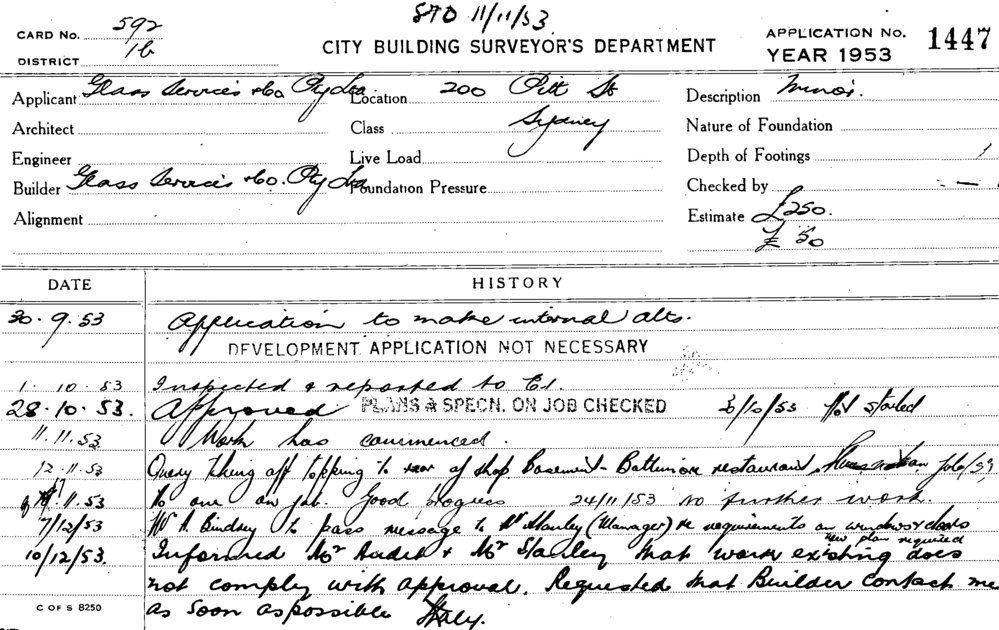 STD 11/11/53
CARD No. 592
DISTRICT 1b
CITY BUILDING SURVEYOR'S DEPARTMENT
APPLICATION No. 1447
YEAR 1953
Applicant Glass Services & Co. Pty Ltd Location 200 Pitt St Description Minor
Architect Class Sydney Nature of Foundation
Engineer Live Load Depth of Footings
Builder Glass Services & Co. Pty Ltd Foundation Pressure Checked by
Alignment Estimate £250.
£ 50
DATE HISTORY
30.9.53 Application to make internal alts.
DEVELOPMENT APPLICATION NOT NECESSARY
1.10.53 Inspected & reported to
28.10.53. Approved PLANS & SPECN. ON JOB CHECKED Not started
11.11.53 Work has commenced.
12.11.53 Query taking off topping to rear of shop Basement - restaurant
11.53 No one on job. Good progress 24/11/53 no further work.
7/12/53 to pass message to Mr Stanley (Manager) re requirements on windows & doors
new plan required
10/12/53. Informed Mr & Mr Stanley that work existing does
not comply with approval. Requested that Builder contact me
as soon as possible
C OF S 8250